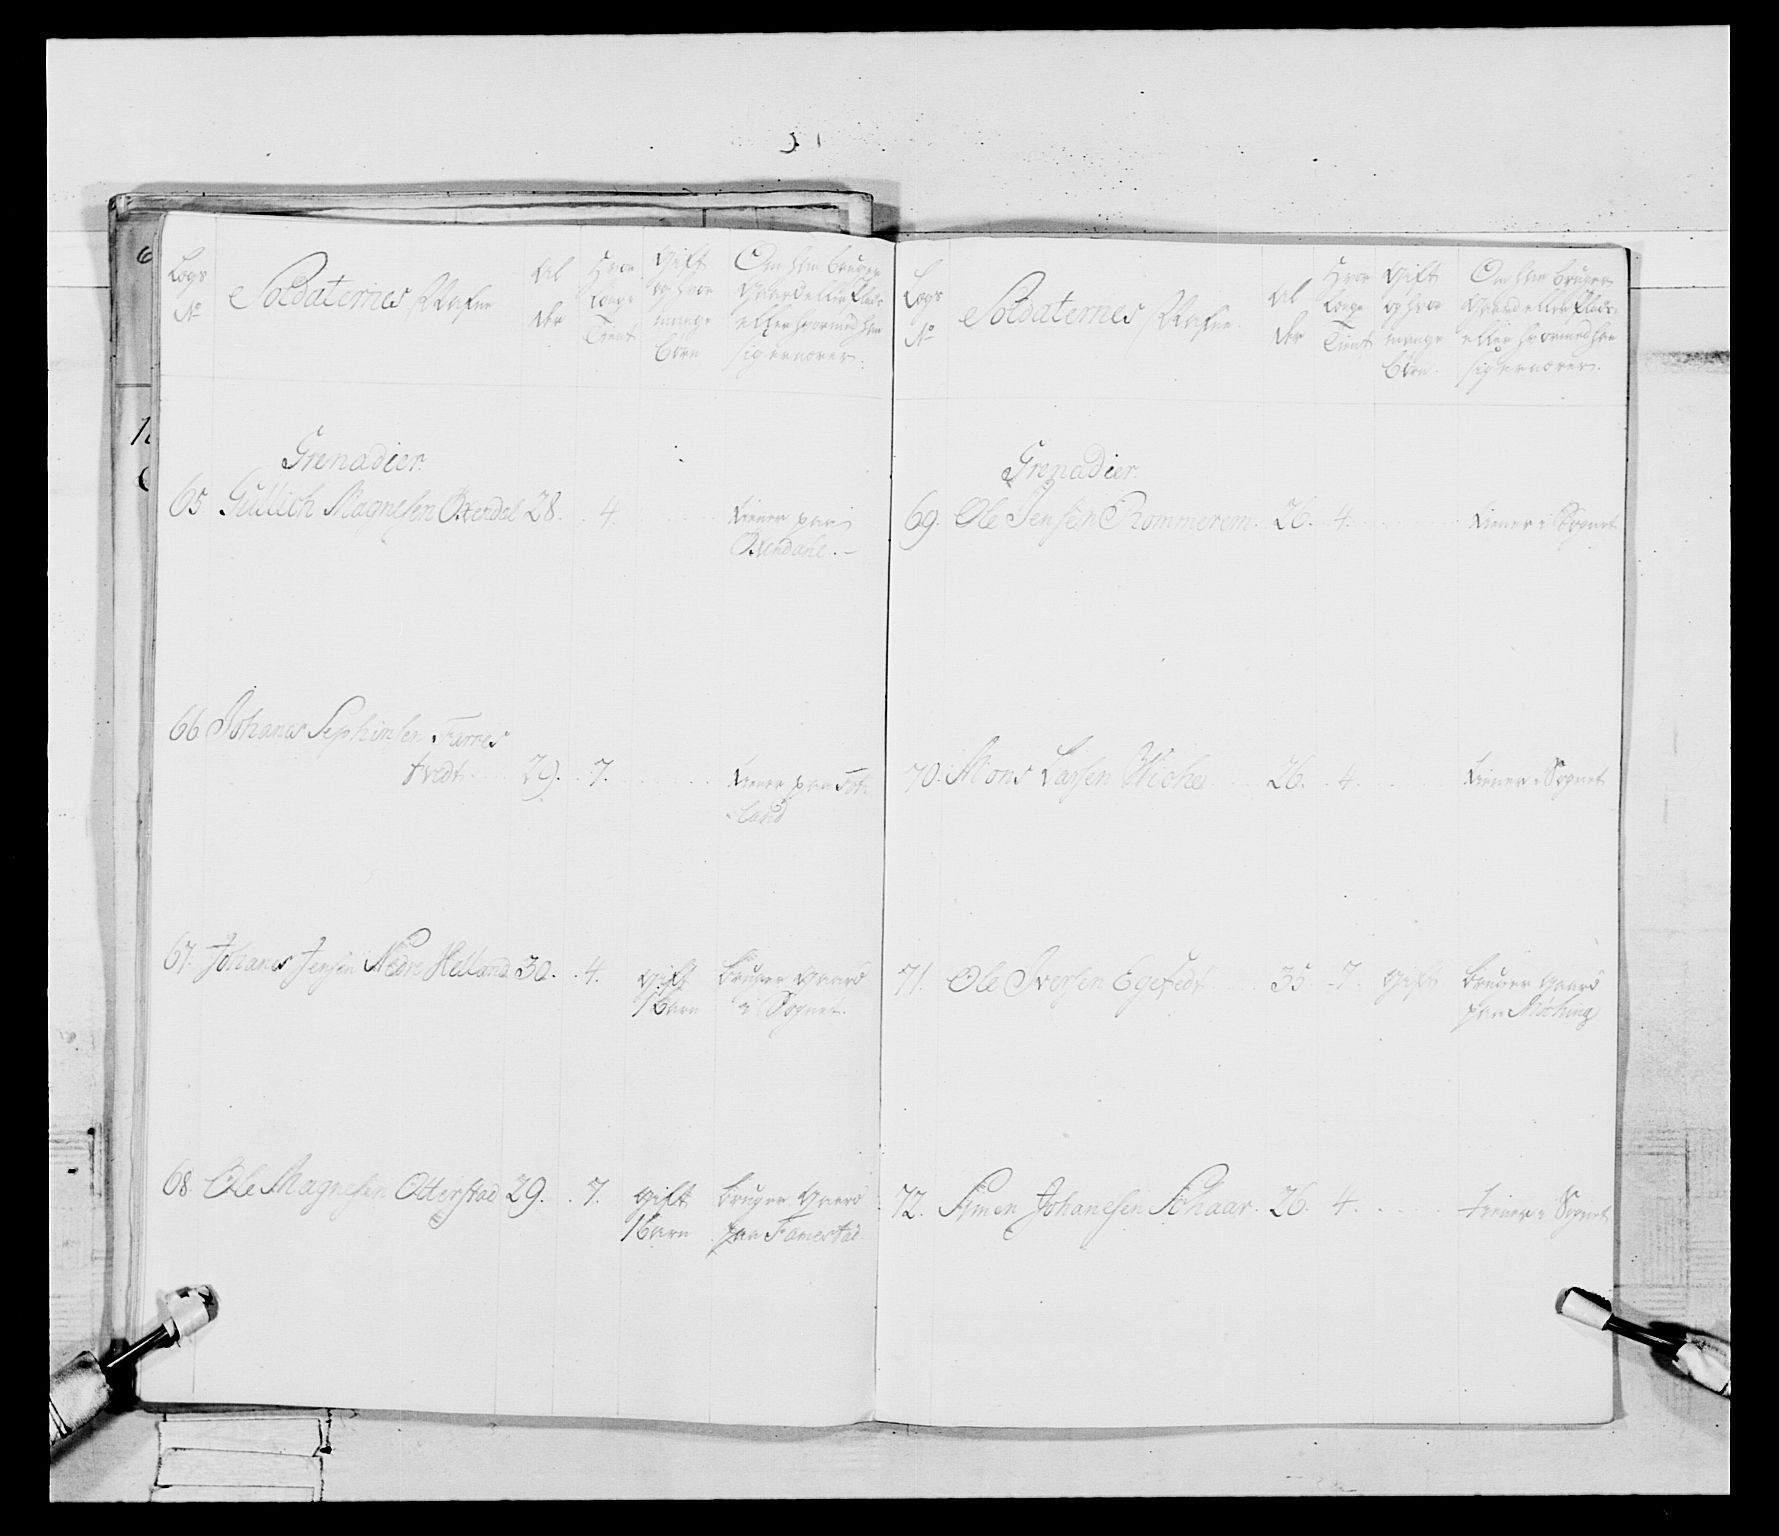 Logs
No
Soldaternes Nafne
Al
der
Hvor
Længe
Tient
Gift
og hvor
mange
børn
Om han bruger
Gaard eller Plads
eller hvormed han
sig ernærer.
Grenadier.
65. Gullich Magnesen Oxendal 28. 4. tiener paa
Oxendahl. –
66. Johanes Sephimsen Farres
tvedt 29. 7. tiener paa
land
67. Johanes Jensen Nedre Helland 30. 4. gift bruger gaard
1 Barn i Sognet.
68. Ole Magnesen Otterstad 29. 7. gift bruger Gaard
1 Barn paa Famestad
Logs
No
Soldaternes Nafne
Al
der
Hvor
Længe
Tient
Gift
og hvor
mange
børn.
Om han bruger
Gaard eller Plads
eller hvormed han
sig ernærer.
Grenadier.
69. Ole Jensen Rommerem. 26. 4. tiener i Sognet
70. Mons Larsen Wiche 26. 4. tiener i Sognet
71. Ole Iversen Egetedt 35. 7. gift bruger gaard
paa Møching
72. Simen Johanesen Schaar. 26. 4. tiener i Sognet